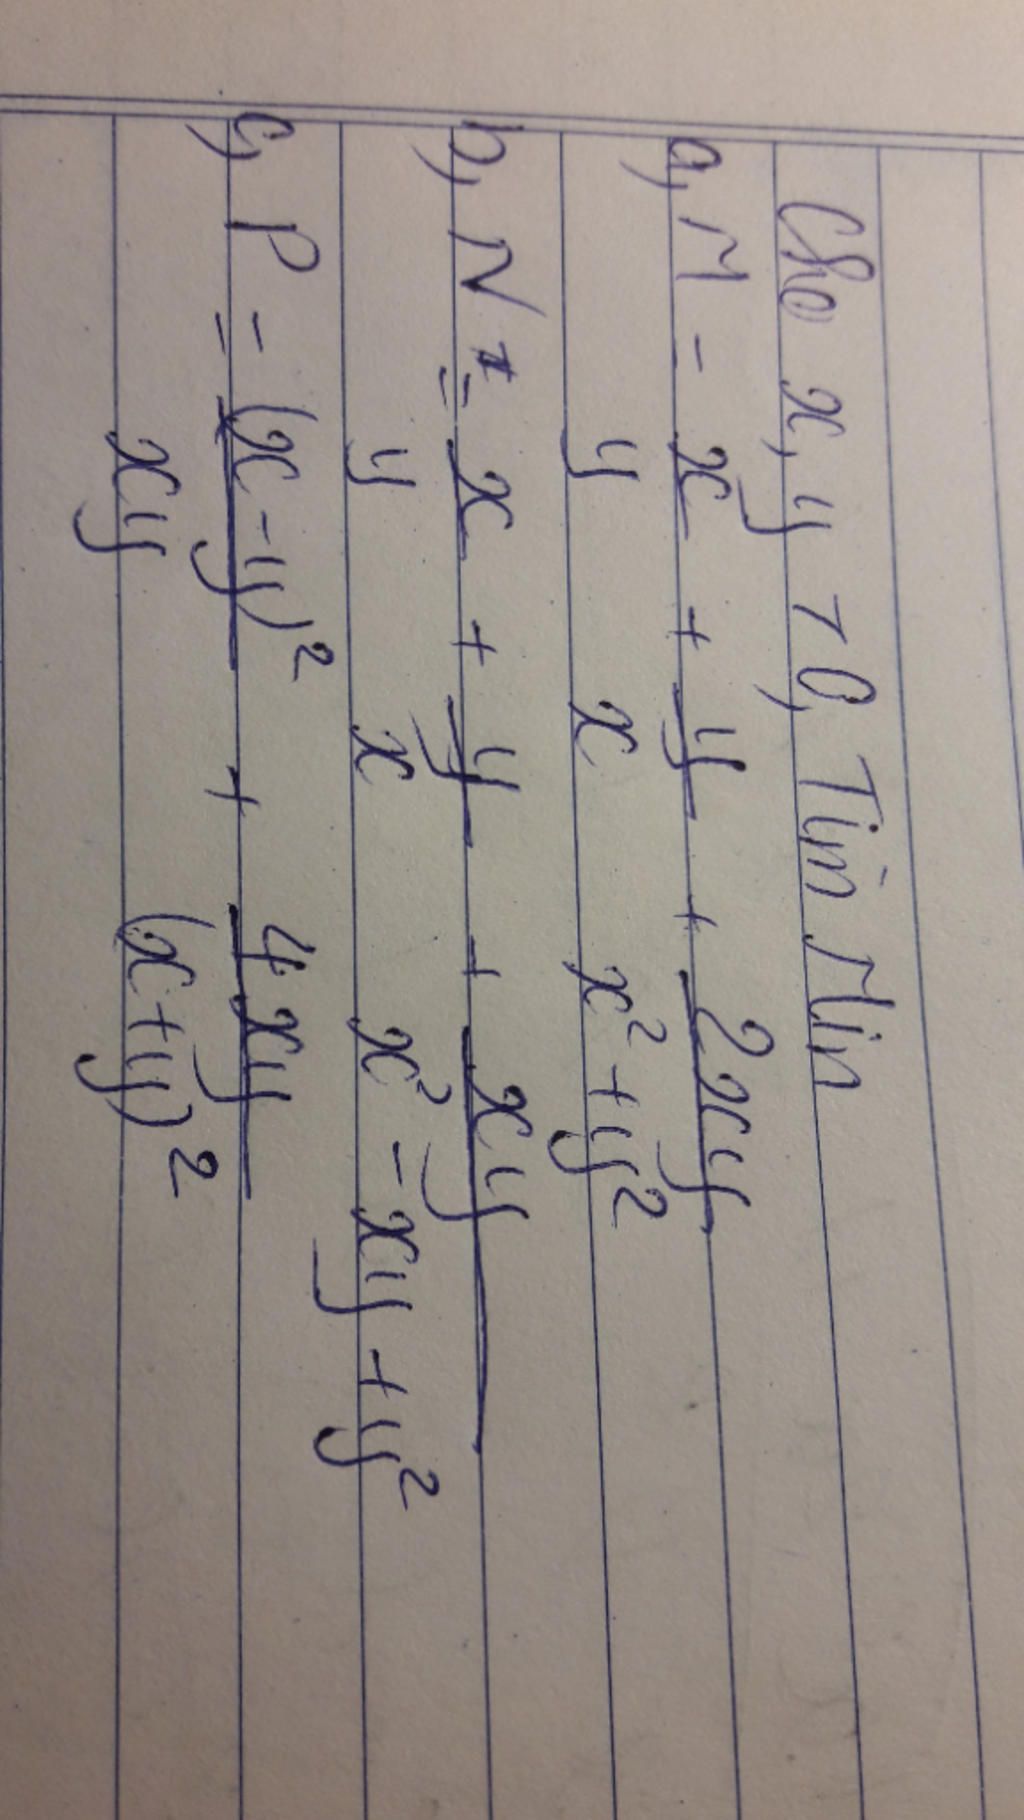 Cho x, y > 0, Tìm Min
a, M = x/y + y/x + 2xy/(x² + y²)
b, N = x/y + y/x + xy/(x² - xy + y²)
c, P = (x - y)²/xy + 4xy/(x + y)²